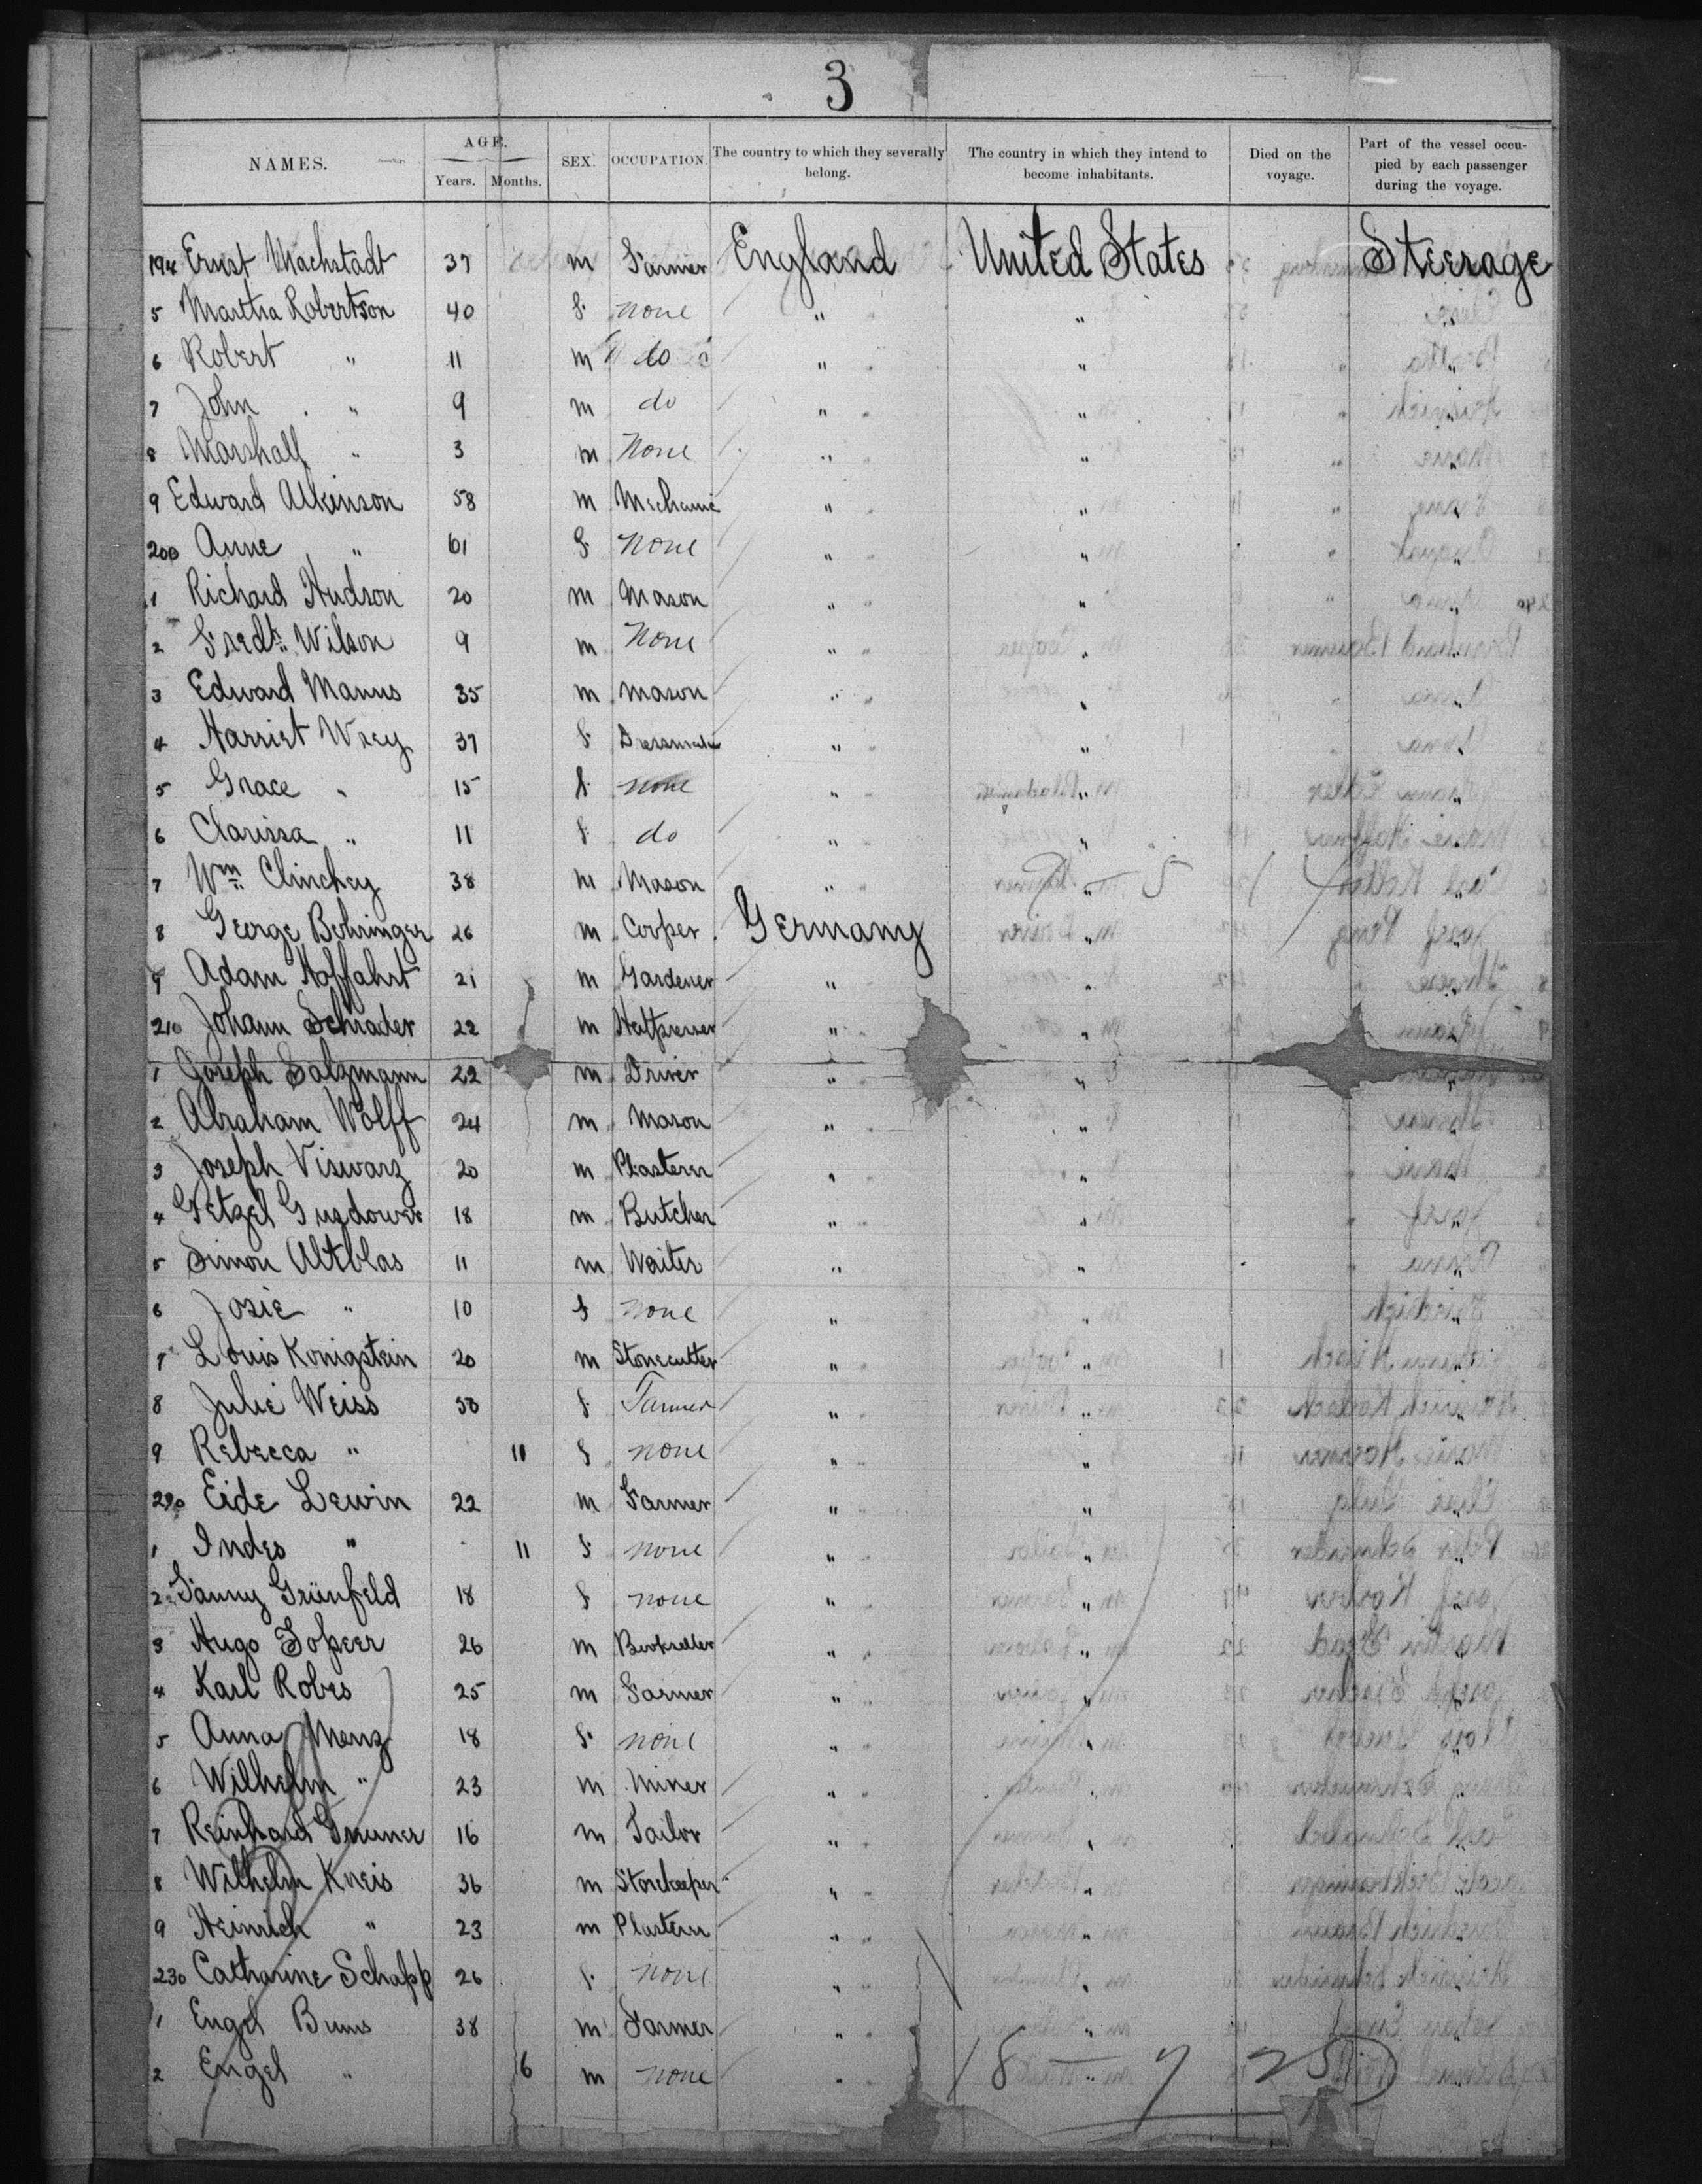 3
NAMES. AGE. Years. Months. SEX. OCCUPATION. The country to which they severally belong. The country in which they intend to become inhabitants. Died on the voyage. Part of the vessel occupied by each passenger during the voyage.
194 Ernst Wachstadt 37 m Farmer England United States Steerage
5 Martha Robertson 40 f none " " "
6 Robert " 11 m do " " "
7 John " 9 m do " " "
8 Marshall " 3 m None " " "
9 Edward Atkinson 58 m Mechanic " " "
200 Anne " 61 f None " " "
1 Richard Hudson 20 m Mason " " "
2 Fredk. Wilson 9 m None " " "
3 Edward Manns 35 m mason " " "
4 Harriet Wrey 37 f Dressmaker " " "
5 Grace " 15 f none " " "
6 Clarissa " 11 f do " " "
7 Wm. Clinchey 38 m Mason " " "
8 George Behringer 26 m Cooper Germany " "
9 Adam Hoffahrt 21 m Gardener " " "
210 Johann Schrader 22 m " " "
1 Joseph Salzmann 22 m Driver " " "
2 Abraham Wolff 24 m Mason " " "
3 Joseph Viswarz 20 m Plasterer " " "
4 Getzel 18 m Butcher " " "
5 Simon Altblas 11 m Waiter " " "
6 Josie " 10 f none " " "
7 Louis Konigstein 20 m Stonecutter " " "
8 Julie Weiss 50 f Farmer " " "
9 Rebecca " 11 f none " " "
220 Eide Lewin 22 m Farmer " " "
1 Indes " 11 f none " " "
2 Fanny Grünfeld 18 f none " " "
3 Hugo 26 m Bookseller " " "
4 Karl Robes 25 m Farmer " " "
5 Anna Menz 18 f none " " "
6 Wilhelm " 23 m Miner " " "
7 Reinhard Gruner 16 m Tailor " " "
8 Wilhelm Kreis 36 m Storekeeper " " "
9 Heinrich " 23 m Plasterer " " "
230 Catharine Schapp 26 f none " " "
1 Engel Buns 38 m Farmer " " "
2 Engel " 6 m none " " "